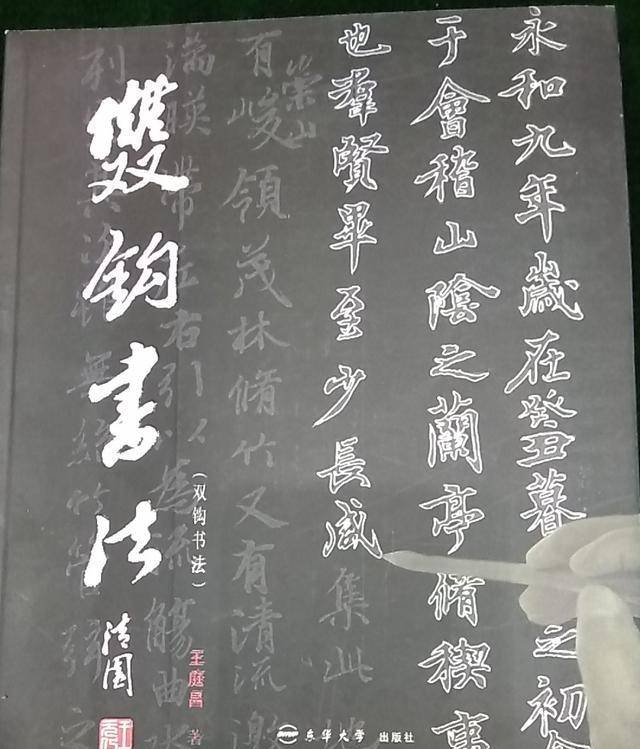 永和九年歲在癸丑暮之初
于會稽山陰之蘭亭脩禊事
也羣賢畢至少長咸集此地
有崇山峻領茂林脩竹又有清流激
湍暎帶左右引以為流觴曲水
列無絲竹管弦之
雙鈎書法
(双钩书法)
著
东华大学 出版社